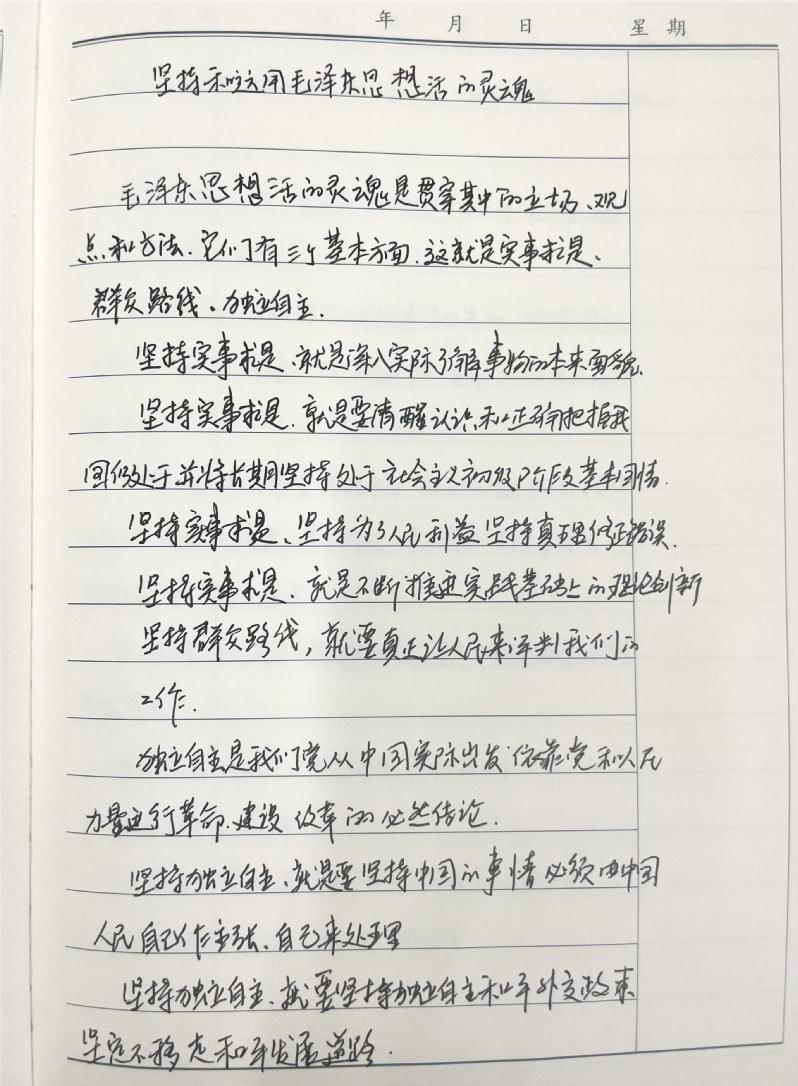 年 月 日 星期
坚持和运用毛泽东思想活的灵魂
毛泽东思想活的灵魂是贯穿其中的立场、观
点和方法、它们有三个基本方面、这就是实事求是、
群众路线、独立自主.
坚持实事求是、就是深入实际了解事物的本来面貌.
坚持实事求是、就是要清醒认识和正确把握我
国仍处于并将长期坚持处于社会主义初级阶段基本国情.
坚持实事求是、坚持为了人民利益坚持真理修正错误.
坚持实事求是、就是不断推进实践基础上的理论创新
坚持群众路线，就要真正让人民来评判我们的
工作.
独立自主是我们党从中国实际出发依靠党和人民
力量进行革命、建设 改革的必然结论.
坚持独立自主、就是要坚持中国的事情必须由中国
人民自己作主张、自己来处理
坚持独立自主、就要坚持独立自主和平外交政策
坚定不移走和平发展道路.